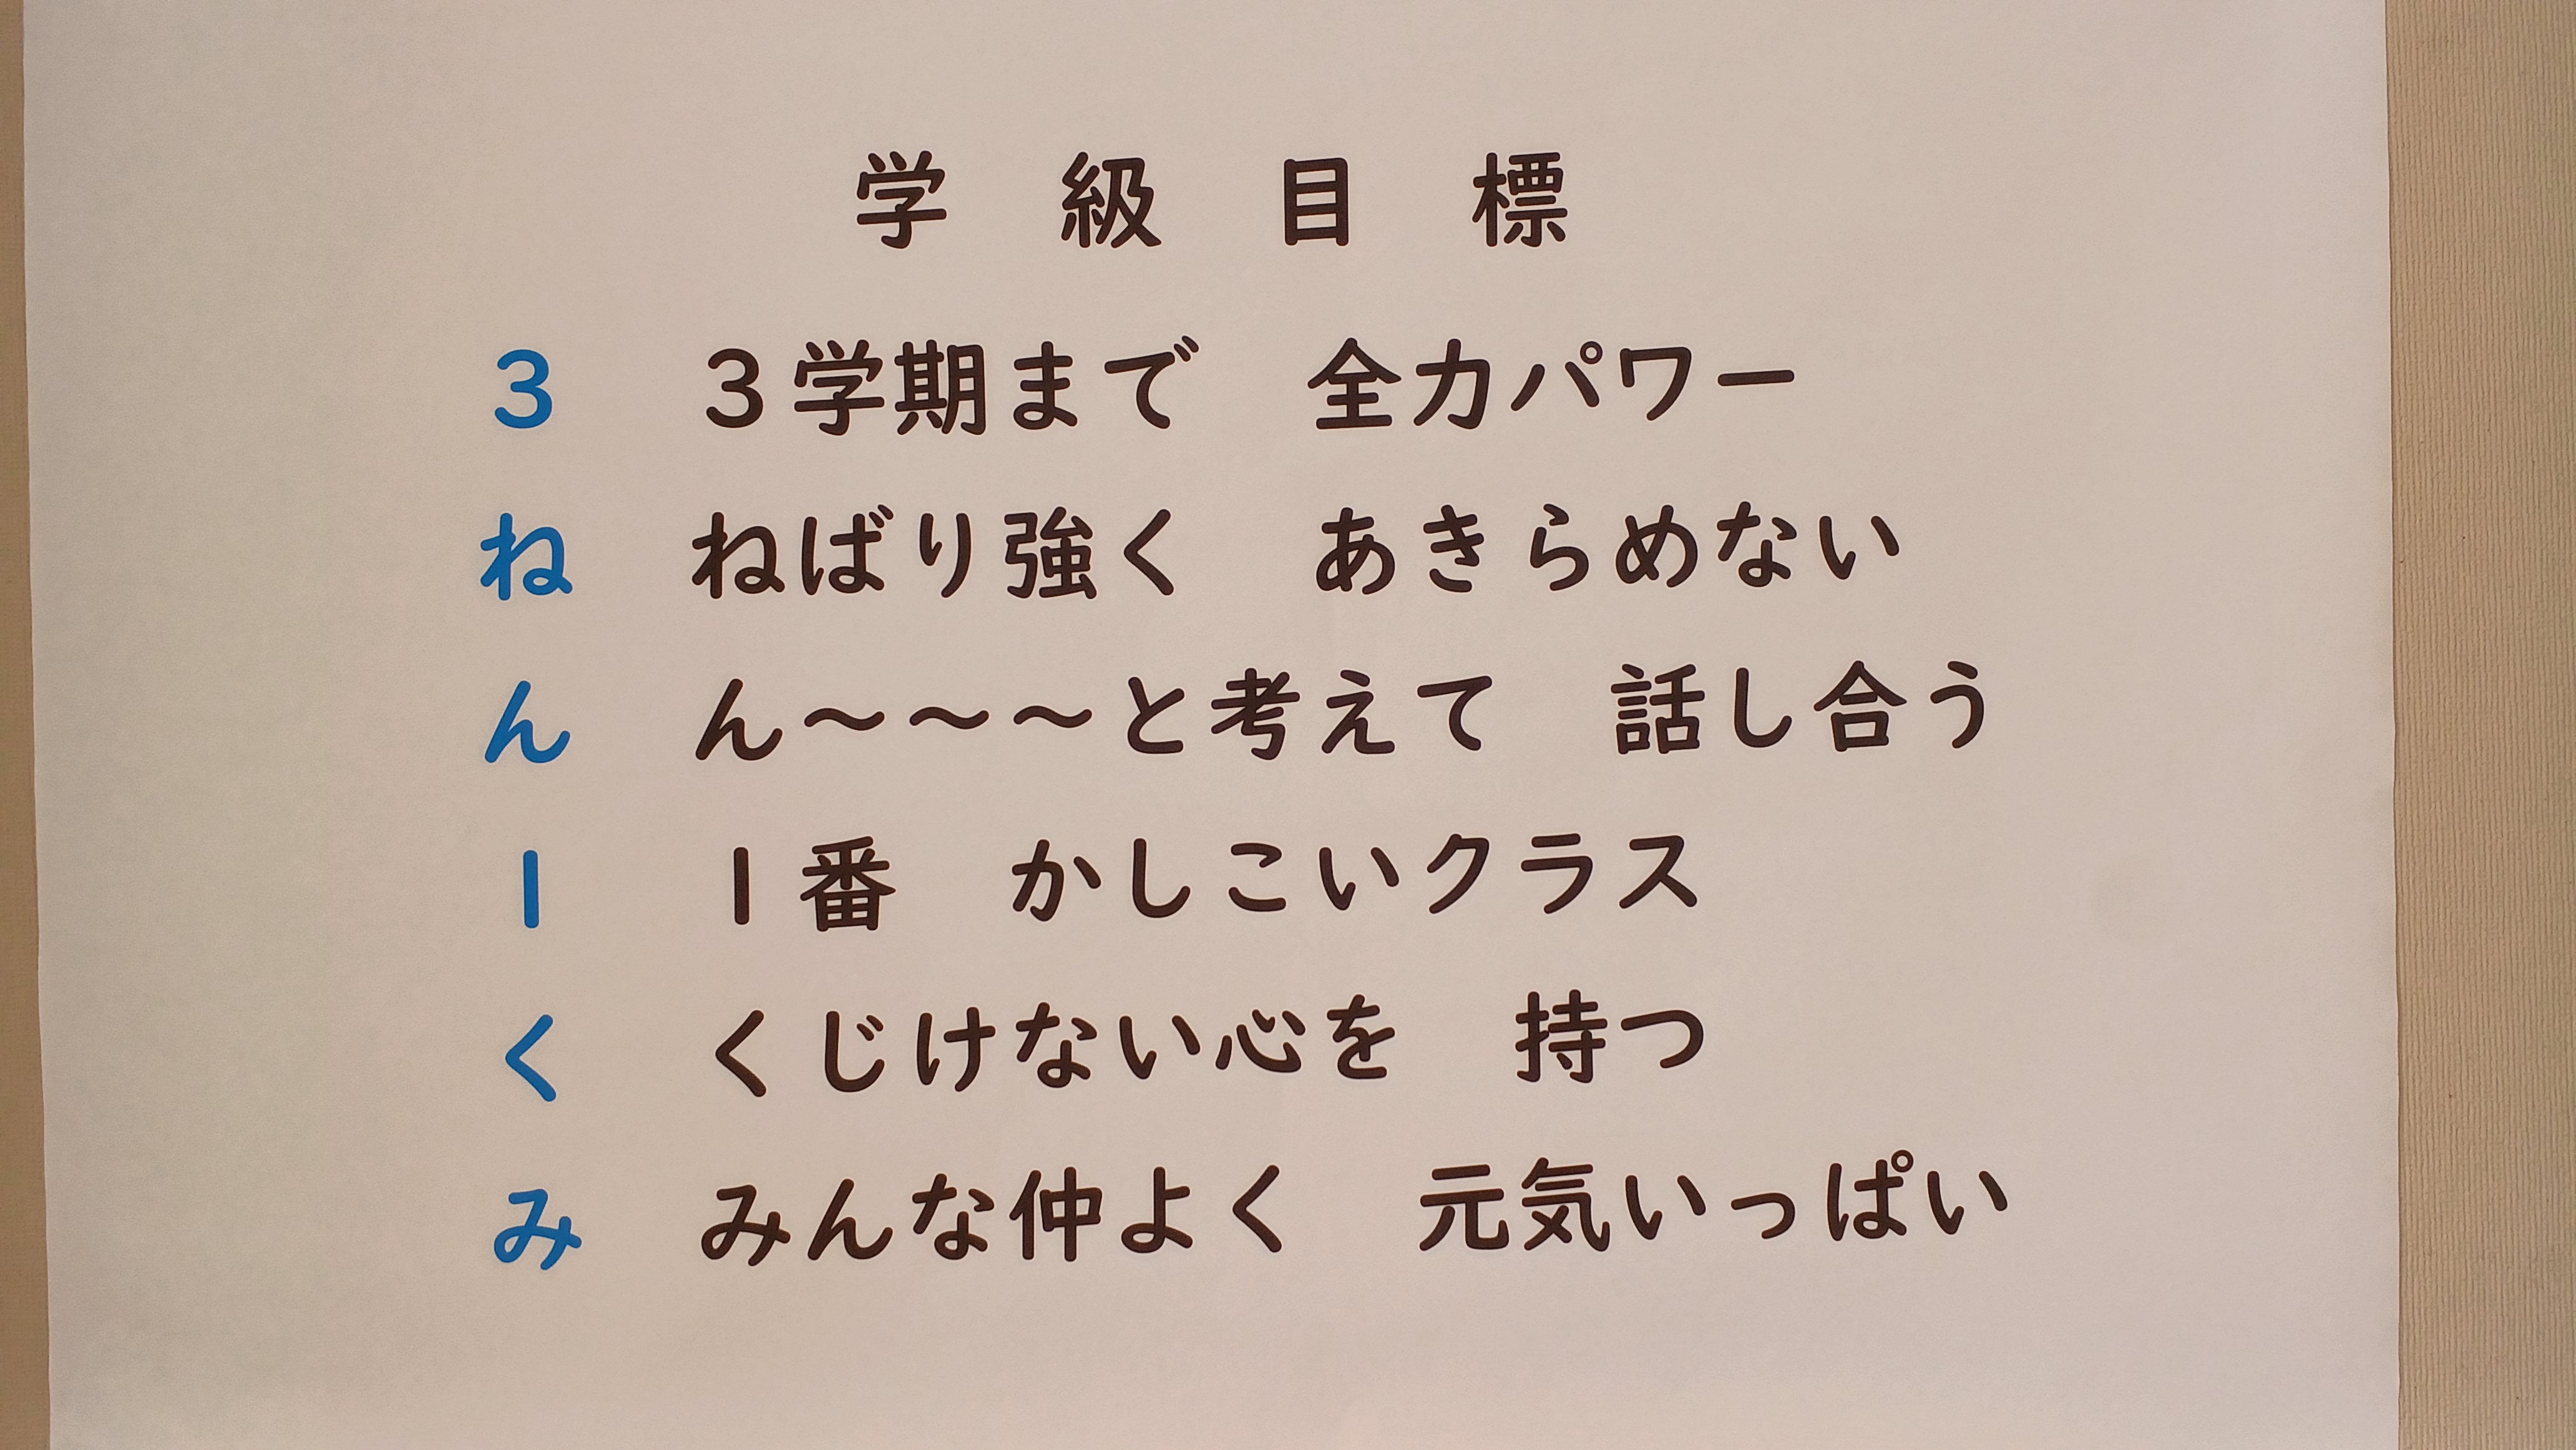 学 級 目 標
3 3学期まで 全力パワー
ね ねばり強く あきらめない
ん ん～～～と考えて 話し合う
1 1番 かしこいクラス
く くじけない心を 持つ
み みんな仲よく 元気いっぱい